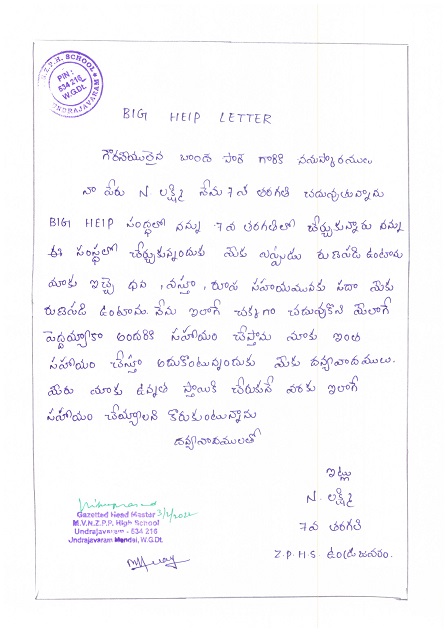 Z.P.H. SCHOOL
PIN:
534 216
W.G.Dt.
UNDRAJAVARAM
BIG HEIP LETTER
గౌరవనీయులైన చాంద పాష గారికి నమస్కారములు
నా పేరు N లక్ష్మి నేను 7వ తరగతి చదువుతున్నాను
BIG HEIP సంస్థలో నన్ను 7వ తరగతిలో చేర్చుకున్నారు నన్ను
ఈ సంస్థలో చేర్చుకున్నందుకు మీకు ఎప్పుడు రుణపడి ఉంటాను
మాకు ఇచ్చే ధన, వస్తూ, రూప సహాయమునకు సదా మీకు
రుణపడి ఉంటాను. నేను ఇలాగే చక్కగా చదువుకొని మీలాగే
పెద్దయ్యాకా అందరికి సహాయం చేస్తాను మాకు ఇంత
సహాయం చేస్తూ ఆదుకొంటున్నందుకు మీకు ధన్యవాదములు.
మీరు మాకు ఉన్నత స్థాయికి చేరుకునే వరకు ఇలాగే
సహాయం చేయ్యాలని కొరుకుంటున్నాను
ధన్యవాదములతో
ఇట్లు
N. లక్ష్మి
7వ తరగతి
Z.P.H.S. ఉండ్రాజవరం.
3/2/2022
Gazetted Head Master
M.V.N.Z.P.P. High School
Undrajavaram - 534 216
Undrajavaram Mandal, W.G.Dt.